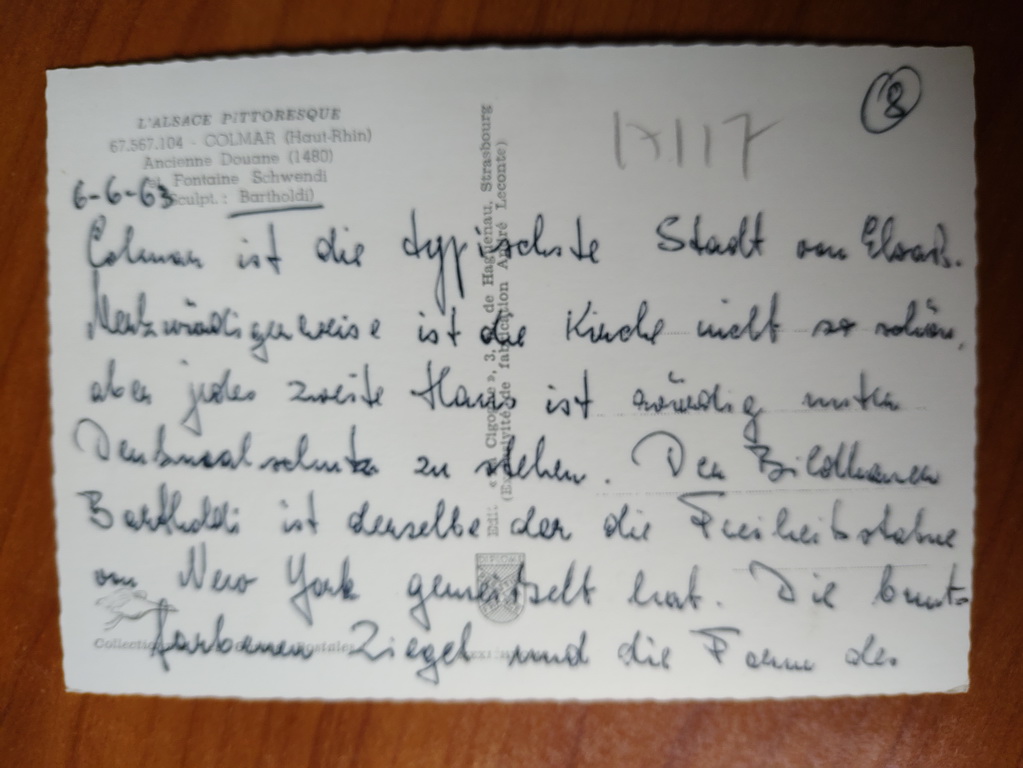 8
L'ALSACE PITTORESQUE
67.567.104 - COLMAR (Haut-Rhin)
Ancienne Douane (1480)
Fontaine Schwendi
6-6-63
Sculpt.: Bartholdi)
Edit. « La Cigogne », 3, de Haguenau, Strasbourg
(Exclusivité de fabrication André Leconte)
Colmar ist die typischste Stadt vom Elsaß.
Merkwürdigerweise ist die Kirche nicht so schön,
aber jedes zweite Haus ist würdig unter
Denkmalschutz zu stehen. Der Bildhauer
Bartholdi ist derselbe der die Freiheitsstatue
von New York gemeißelt hat. Die bunt-
farbenen Ziegel und die Form des
DIPLOME
Collection Postales